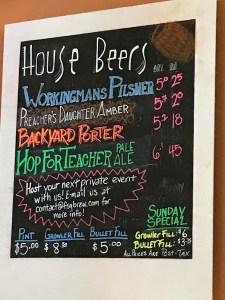 House Beers
ABV IBU
Workingmans Pilsner 5.0 25
Preachers Daughter Amber 20
Backyard Porter 5.2 18
Hop For Teacher Pale Ale 6 45
Host your next private event
with us! Email us at
for
more info!
Sunday
Special
Pint Growler Fill Bullet Fill
$5.00 $8.50 $5.00
Growler Fill: $6
Bullet Fill:
All Prices Are Post-Tax